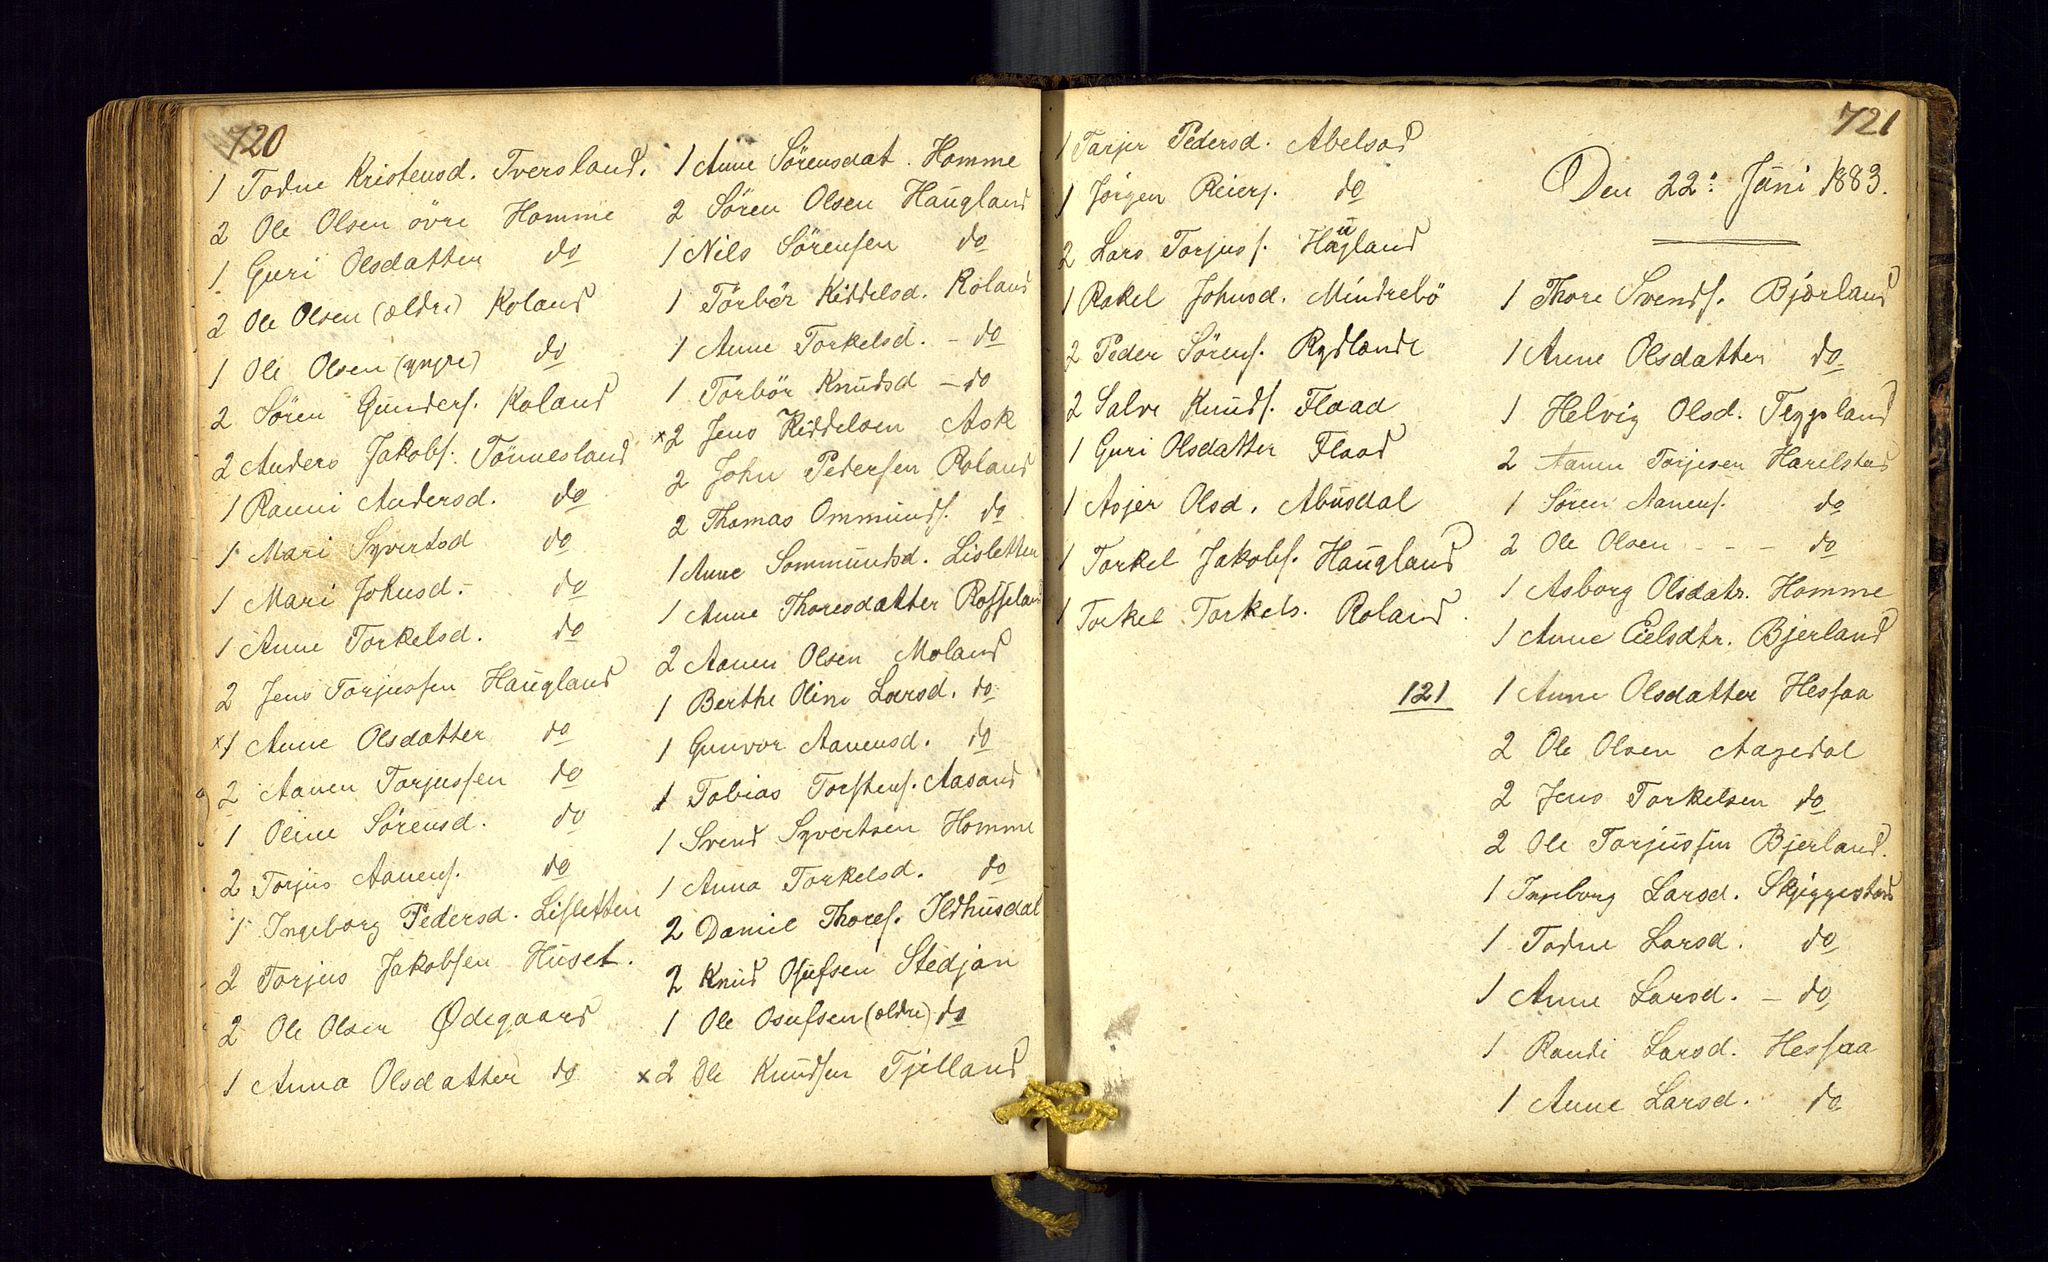 720
1 Todne Kristensd. Tversland.
2 Ole Olsen övre Homme
1 Guri Olsdatter do
2 Ole Olsen (ældre) Roland
1 Ole Olsen (yngre) do
2 Sören Gunders. Roland
2 Anders Jakobs. Tönnesland
1 Ranni Andersd. do
1 Mari Syvertsd do
1 Mari Johnsd. do
1 Anne Torkelsd. do
2 Jens Torjussen Haugland
x1 Anne Olsdatter do
2 Aanen Torjussen do
1 Oline Sörensd. do
2 Torjus Aanens. do
1 Ingeborg Pedersd. Lisletten
2 Torjus Jakobsen Huset.
2 Ole Olsen Ødegaard
1 Anna Olsdatter do
1 Anne Sörensdat. Homme
2 Sören Olsen Haugland
1 Nils Sörensen do
1 Törbör Kiddelsd. Roland
1 Anne Torkelsd. – do
1 Torbör Knudsd – do
x2 Jens Kiddelsen Ask
2 John Pedersen Roland
2 Thomas Ommunds. do
1 Anne Sommundsd. Lisletten
1 Anne Thoresdatter Rosseland
2 Aanen Olsen Moland
1 Berthe Oline Larsd. do
1 Gunvor Aanensd. do
1 Tobias Torstens. Aasand
1 Svend Syvertsen Homme
1 Anna Torkelsd. do
2 Daniel Thores. Ildhusdal
2 Knud Osufsen Stedjan
1 Ole Osufsen (ældre) do
x2 Ole Knudsen Tjelland
1 Tarjer Pedersd. Abelsad
1 Jörgen Reiers. do
2 Lars Torjuss. Haugland
1 Rakel Johnsd. Mindrebö
2 Peder Sörens. Rydlande
2 Salve Knuds. Flaad
1 Guri Olsdatter Flaad
1 Asjer Olsd. Abusdal
1 Torkel Jakobs. Haugland
1 Torkel Torkels. Roland.
121
721
Den 22: Juni 1883.
1 Thore Svends. Bjærland
1 Anne Olsdatter do
1 Helvig Olsd. Teppsland
2 Aanen Torjesen Harelstad
1 Sören Aanens. do
2 Ole Olsen - - - do
1 Asborg Olsdatr. Homme
1 Anne Eielsdtr. Bjerland
1 Anne Olsdatter Hessaa
2 Ole Olsen Aagedal
2 Jens Torkelsen do
2 Ole Torjussen Bjerland.
1 Ingeborg Larsd. Skjeggestad
1 Todne Larsd. do
1 Anne Larsd. – do
1 Randi Larsd. Hessaa
1 Anne Larsd. do